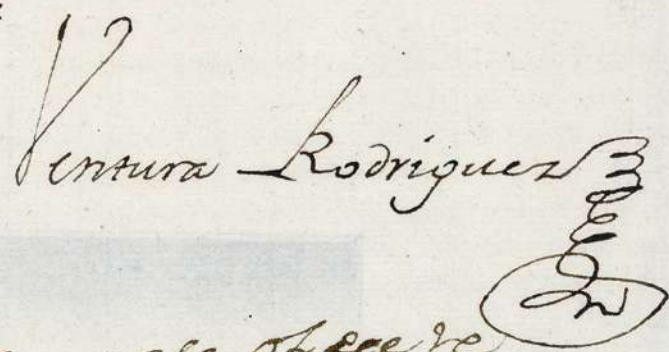 Ventura Rodriguez